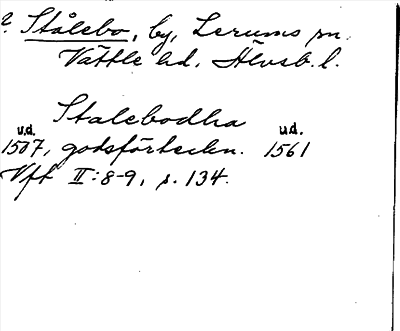 ? Stålebo, by, Lerums sn.
Vättle hd, Älvsb. l.
Stalebodha
u.d. u.d.
1507, godsförteckn. 1561
Vft II:8-9, s. 134.